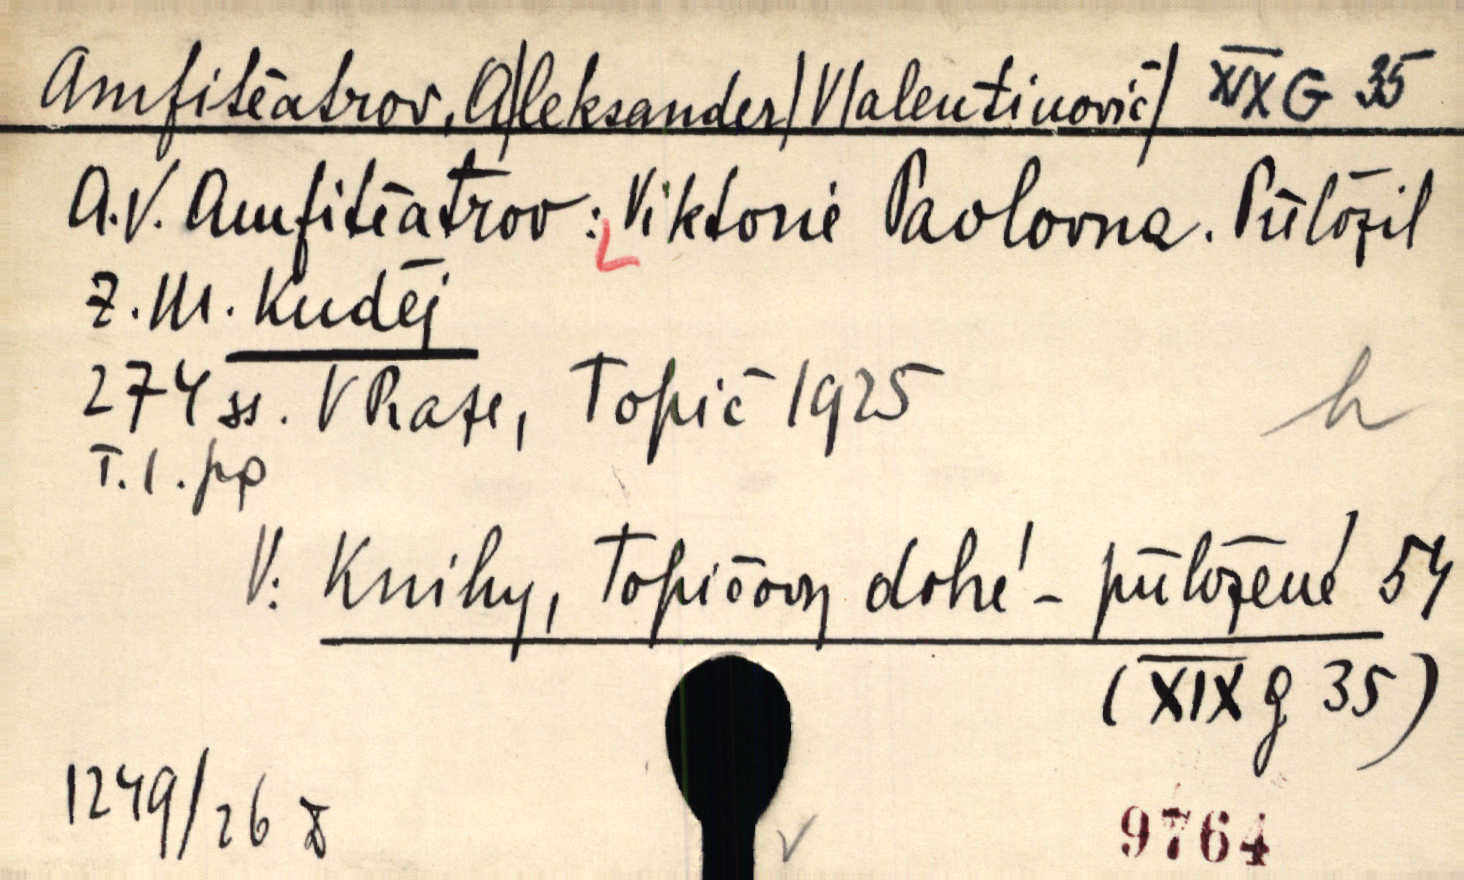 Amfiteatrov, A/leksander/ V/alentinovič/ XIX G 35
A.V. Amfiteatrov: Viktorie Pavlovna. Přeložil
Z. M. Kuděj
274 ss. V Praze, Topič 1925
T. 1. pp
V: Knihy, Topičovy dobré - přeložené 54
(XIX g 35)
1249/26
9764